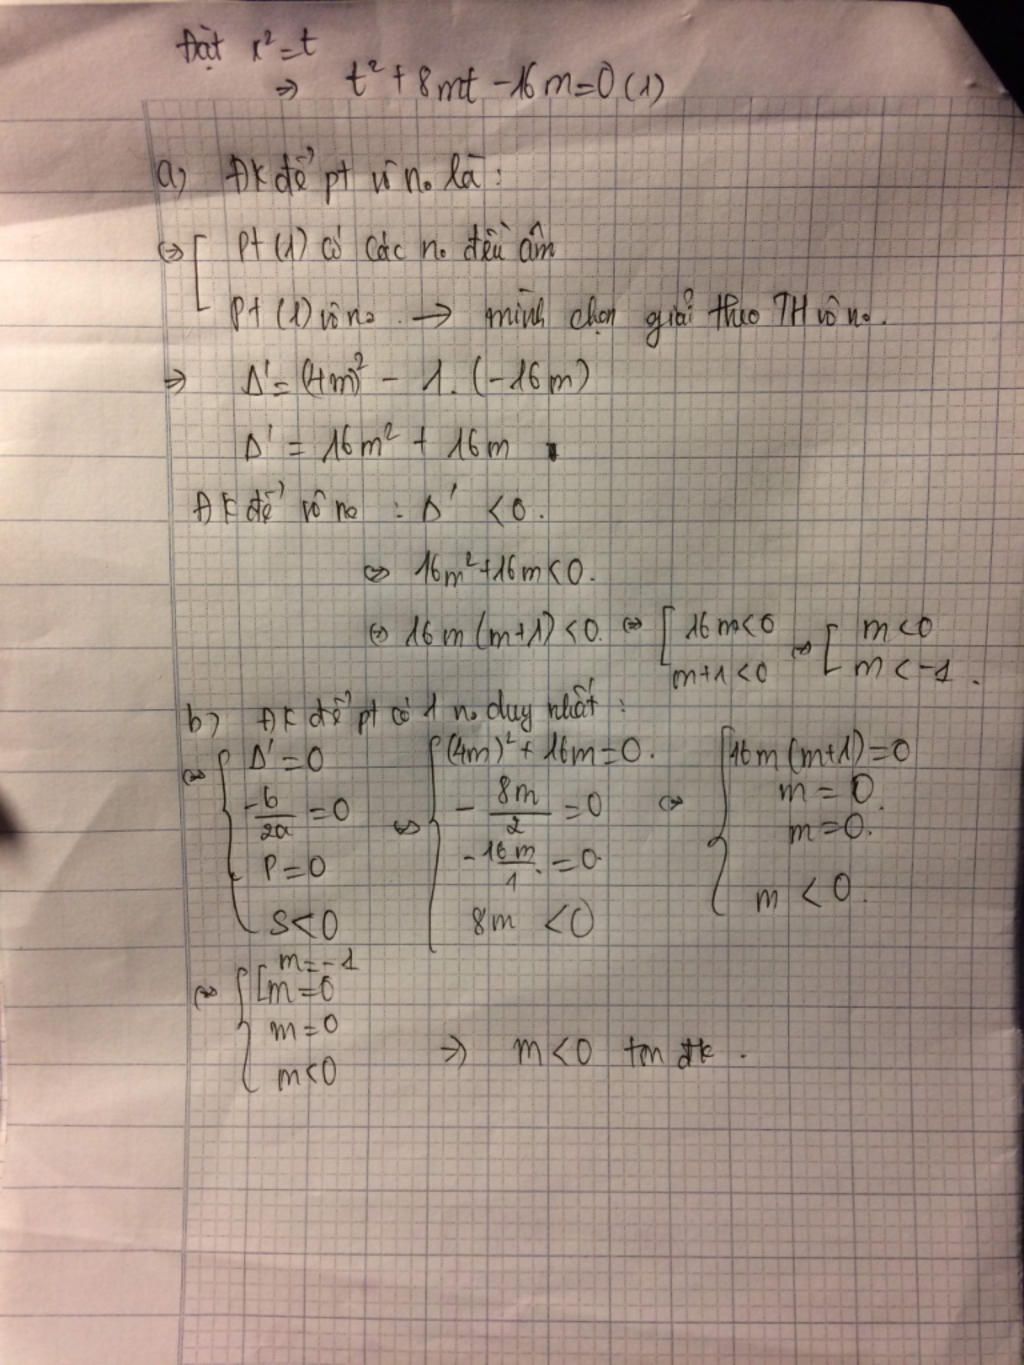 Đặt x² = t
⇒ t² + 8mt - 16m = 0 (1)
a) ĐK để pt vô n₀ là :
⇔ [ Pt (1) có các n₀ đều âm
Pt (1) vô n₀ → mình chọn giải theo TH vô n₀.
⇒ Δ' = (4m)² - 1. (-16m)
Δ' = 16m² + 16m
ĐK để vô n₀ : Δ' < 0.
⇔ 16m² + 16m < 0.
⇔ 16m (m+1) < 0. ⇔ [ 16m < 0 ⇔ [ m < 0
m+1 < 0 m < -1.
b) ĐK để pt có 1 n₀ duy nhất :
⇔ { Δ' = 0 { (4m)² + 16m = 0. { 16m (m+1) = 0
-b/2a = 0 ⇔ - 8m/2 = 0 ⇔ m = 0.
P = 0 -16m/1 = 0. m = 0.
S < 0 8m < 0 m < 0.
⇔ { [ m = -1
m = 0
m = 0
m < 0 ⇒ m < 0 tm đk.